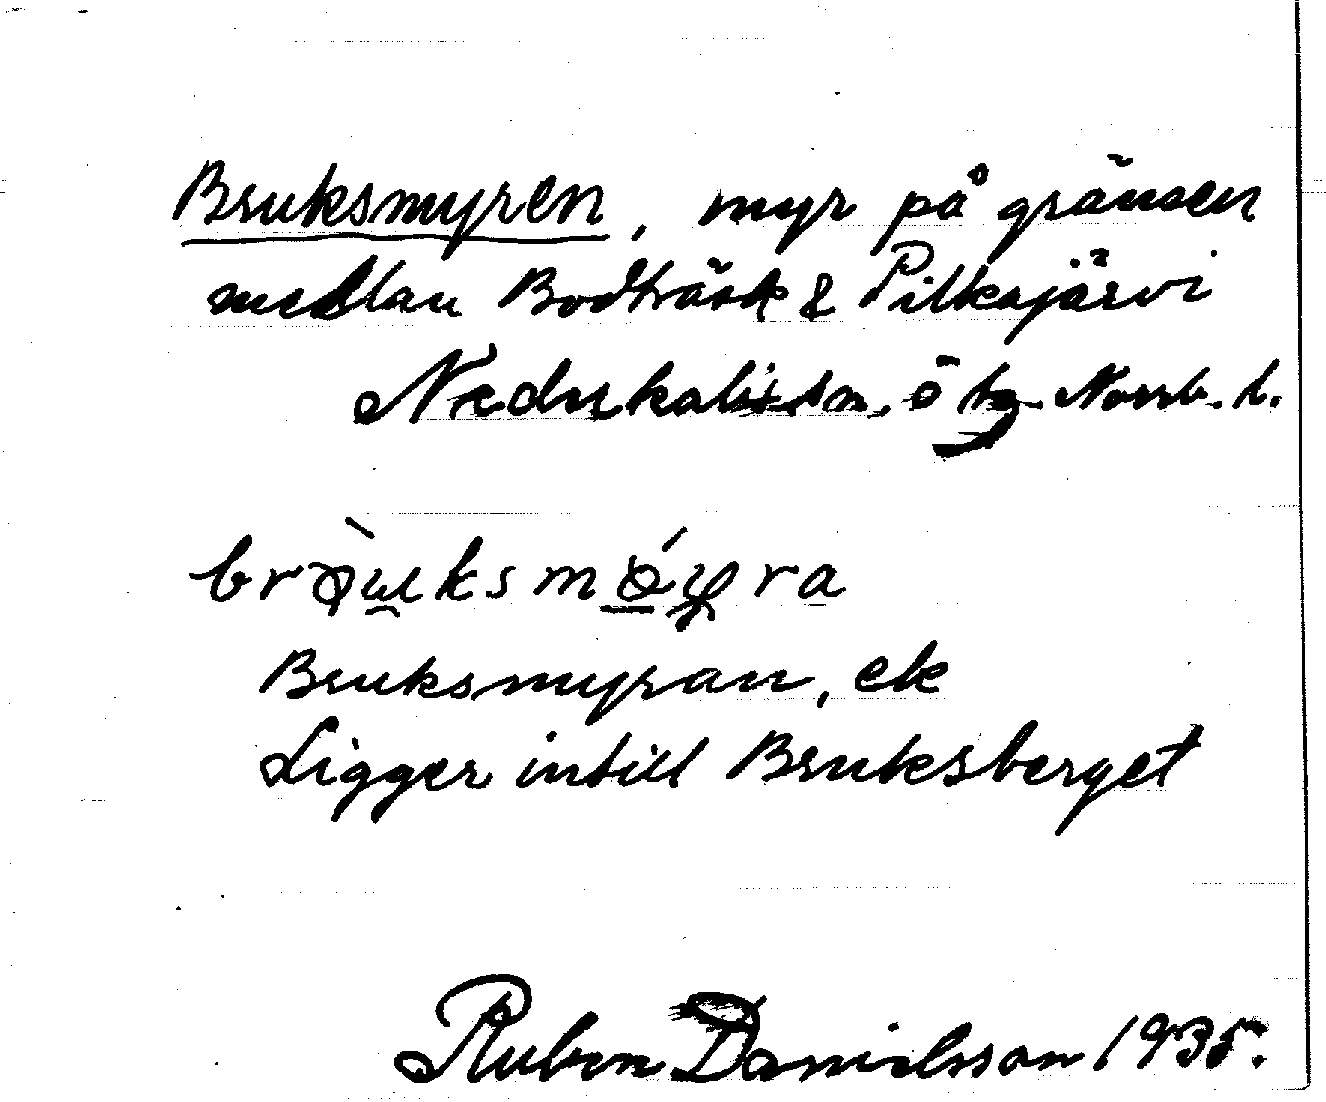 Bruksmyren, myr på gränsen
mellan Bodträsk & Pilkajärvi
Nederkalix sn, ö tg. Norrb. l.
bròu̯ksmǿy̯ra
Bruksmyran, ek
Ligger intill Bruksberget
Ruben Danielsson 1935.